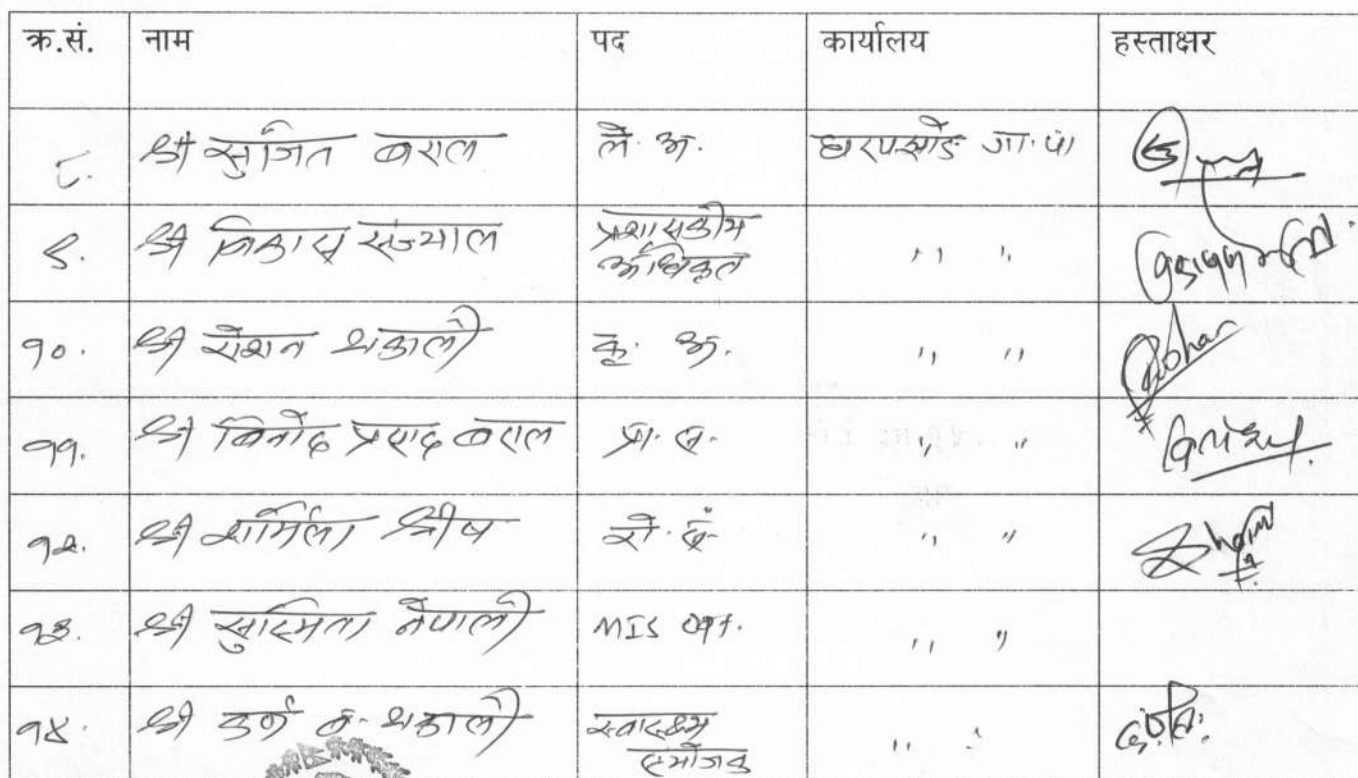 क्र.सं. नाम पद कार्यालय हस्ताक्षर
८. श्री सुजित बराल ले. अ. घरपझोङ गा. पा
९. श्री विकास संज्याल प्रशासकीय अधिकृत ,, ,,
१०. श्री रोशन थकाली कृ. अ. ,, ,,
११. श्री विनोद प्रसाद बराल प्रा. स. ,, ,,
१२. श्री शर्मिला श्रीष रो. सं. ,, ,,
१३. श्री सुस्मिता नेपाली MIS opt. ,, ,,
१४. श्री कर्ण ब. थकाली स्वास्थ्य संयोजक ,, ,,